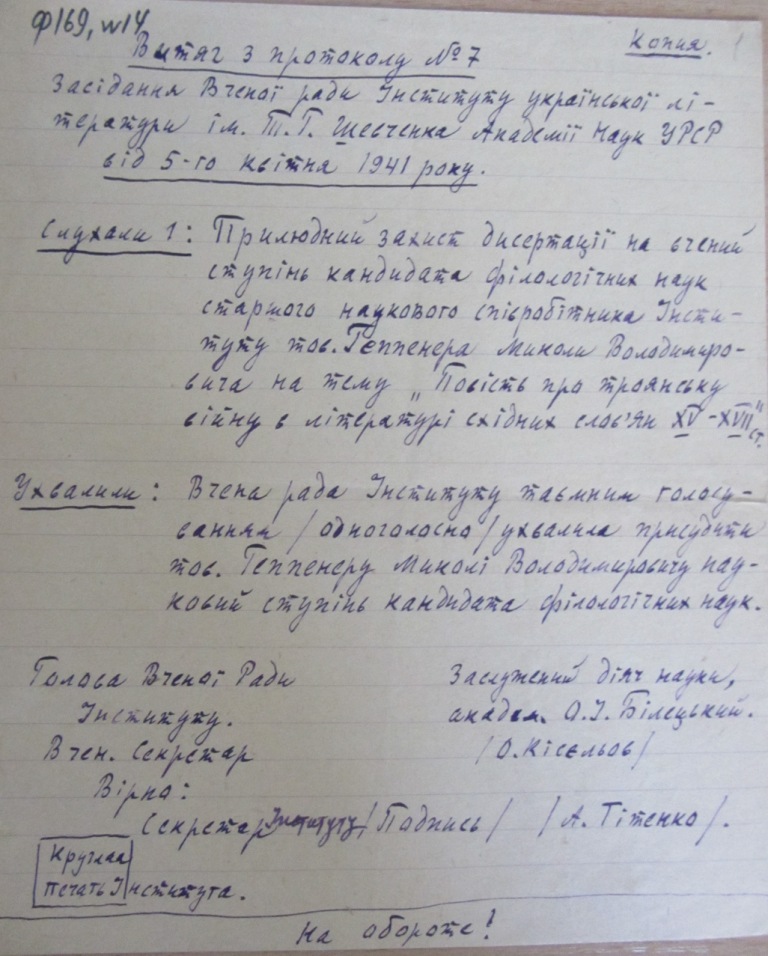 ф169, №14
Копия.
1
Витяг з протоколу №7
Засідання Вченої ради Інституту української лі-
тератури ім. Т.Г. Шевченка Академії Наук УРСР
від 5-го квітня 1941 року.
Слухали 1: Прилюдний захист дисертації на вчений
ступінь кандидата філологічних наук
старшого наукового співробітника Інсти-
туту тов. Геппенера Миколи Володимиро-
вича на тему „Повість про троянську
війну в літературі східних слов'ян XV-XVII" ст.
Ухвалили: Вчена рада Інституту таємним голосу-
ванням /одноголосно/ ухвалила присудити
тов. Геппенеру Миколі Володимировичу нау-
ковий ступінь кандидата філологічних наук.
Голова Вченої Ради
Інституту.
Заслужений діяч науки,
академ. О.І. Білецький.
Вчен. Секретар
/О. Кісєльов/
Вірно:
Секретар Інституту /Подпись/ /А. Тітенко/.
Круглая
печать Института.
На обороте!